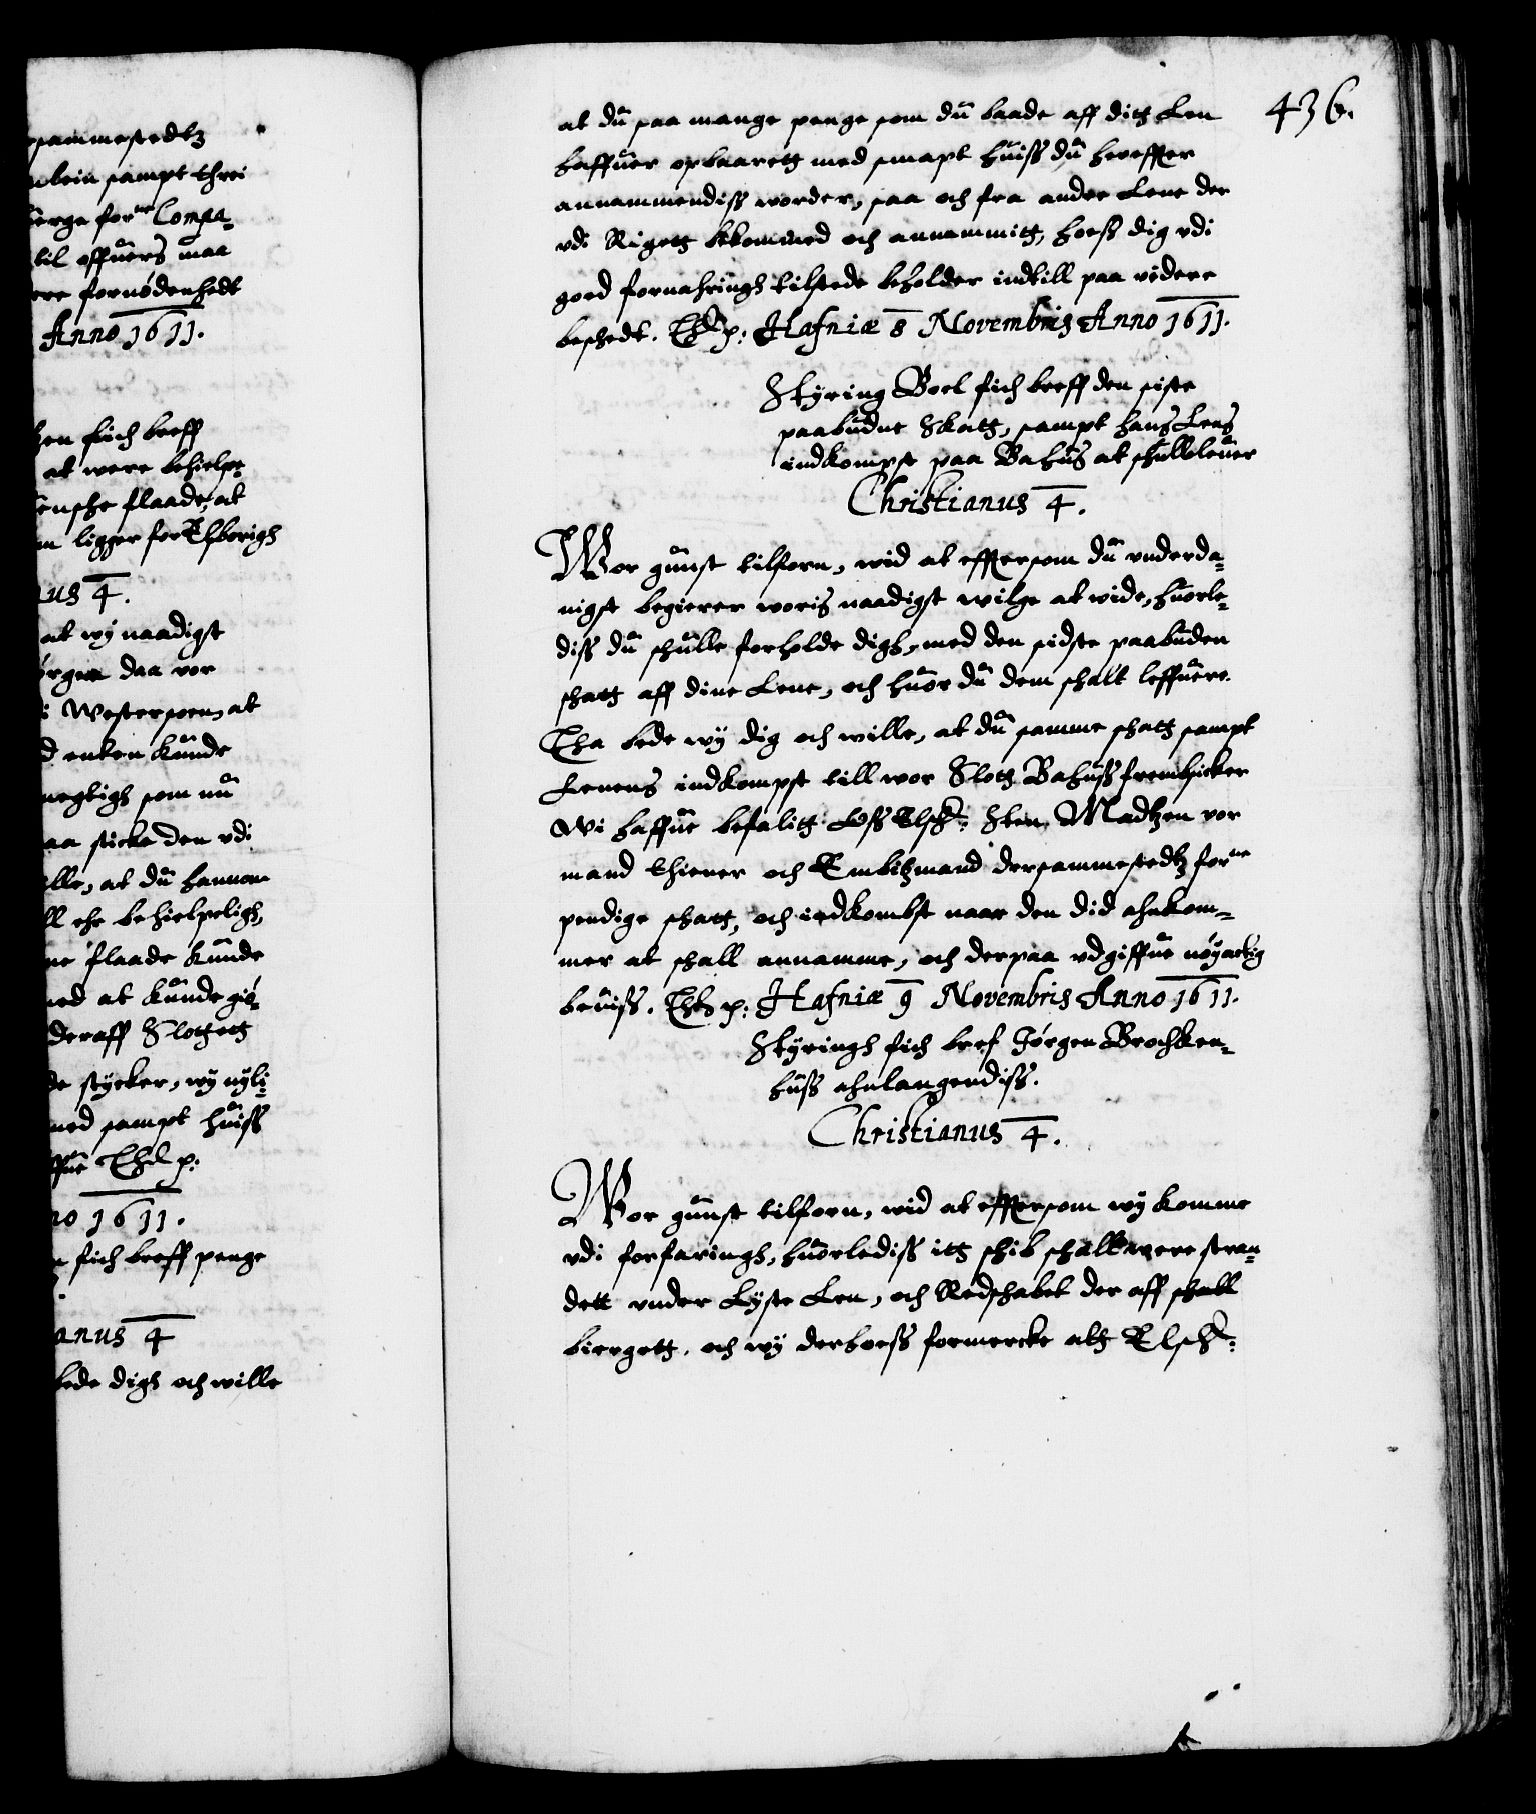 rsammestedtz
nlein sampt threi
uerge for^ne Compa-
til offuers maa
ere fornødenhedt
Anno 1611.
zen fich breff
at were behielpe-
ensche flaade, at
m ligger for Elsborigh
us 4.
at wy naadigst
ørgen daa vor
i Westersoen, at
d enten kunde
megtigh som nu
aa sticke den vdi
lle, at du hannom
ll ehr behielpeligh,
ne flaade kunde
ned at kunde giø-
deraff Slottett
de stycker, wy nyli-
ned sampt huiss
ffue Thd p:
no 1611.
fich breff penge
anus 4
bede digh och wille
436.
at du saa mange penge som du baade aff ditt Len
haffuer opbaarett med smapt huiss du hereffter
annammendiss worder, saa och fra andre Lene der
vdi Rigett bekommed och annammitt, hoess dig vdi
goed fornahringh tilstede beholder indtill paa videre
beschedt. Thd p: Hafniæ 8 Novembris Anno 1611.
Styring Boel fich breff den siste
paabudne Skatt, sampt hans Lens
indkompst paa Bahus at schulleleuer
Christianus 4.
Wor gunst tilforn, wid at effttersom du vnderda-
nigst begierer woris naadigst wilge at wide, huorle-
diss du schulle forholde digh, med den sidste paabuden
schatt aff dine Lene, och huor du dem schalt leffuere.
Tha bede wy dig och wille, at du samme schatt sampt
Lenens indkompst till wor Slott Bahuss fremschicker
Wi haffue befalitt Oss Elsch: Sten Madtzen vor
mand thiener och Embitzmand dersammestedtz for^ne
pendige schatt, och indkombst naar den did ahnkom-
mer at schall annamme, och derpaa vdgiffue nøyactig
beuiss. Thd p: Hafniæ 9 Novembris Anno 1611.
Styringh fich bref Jørgen Brochken-
huss ahnlangendiss.
Christianus 4.
Wor gunst tilforn, wid at effttersom wy komme
vdi forfaringh, huorlediss itt schib schall were stran-
dett vnder Lyste Len, och Redschabet der aff schall
biergett, och wy derhoess formercke att Elsch: